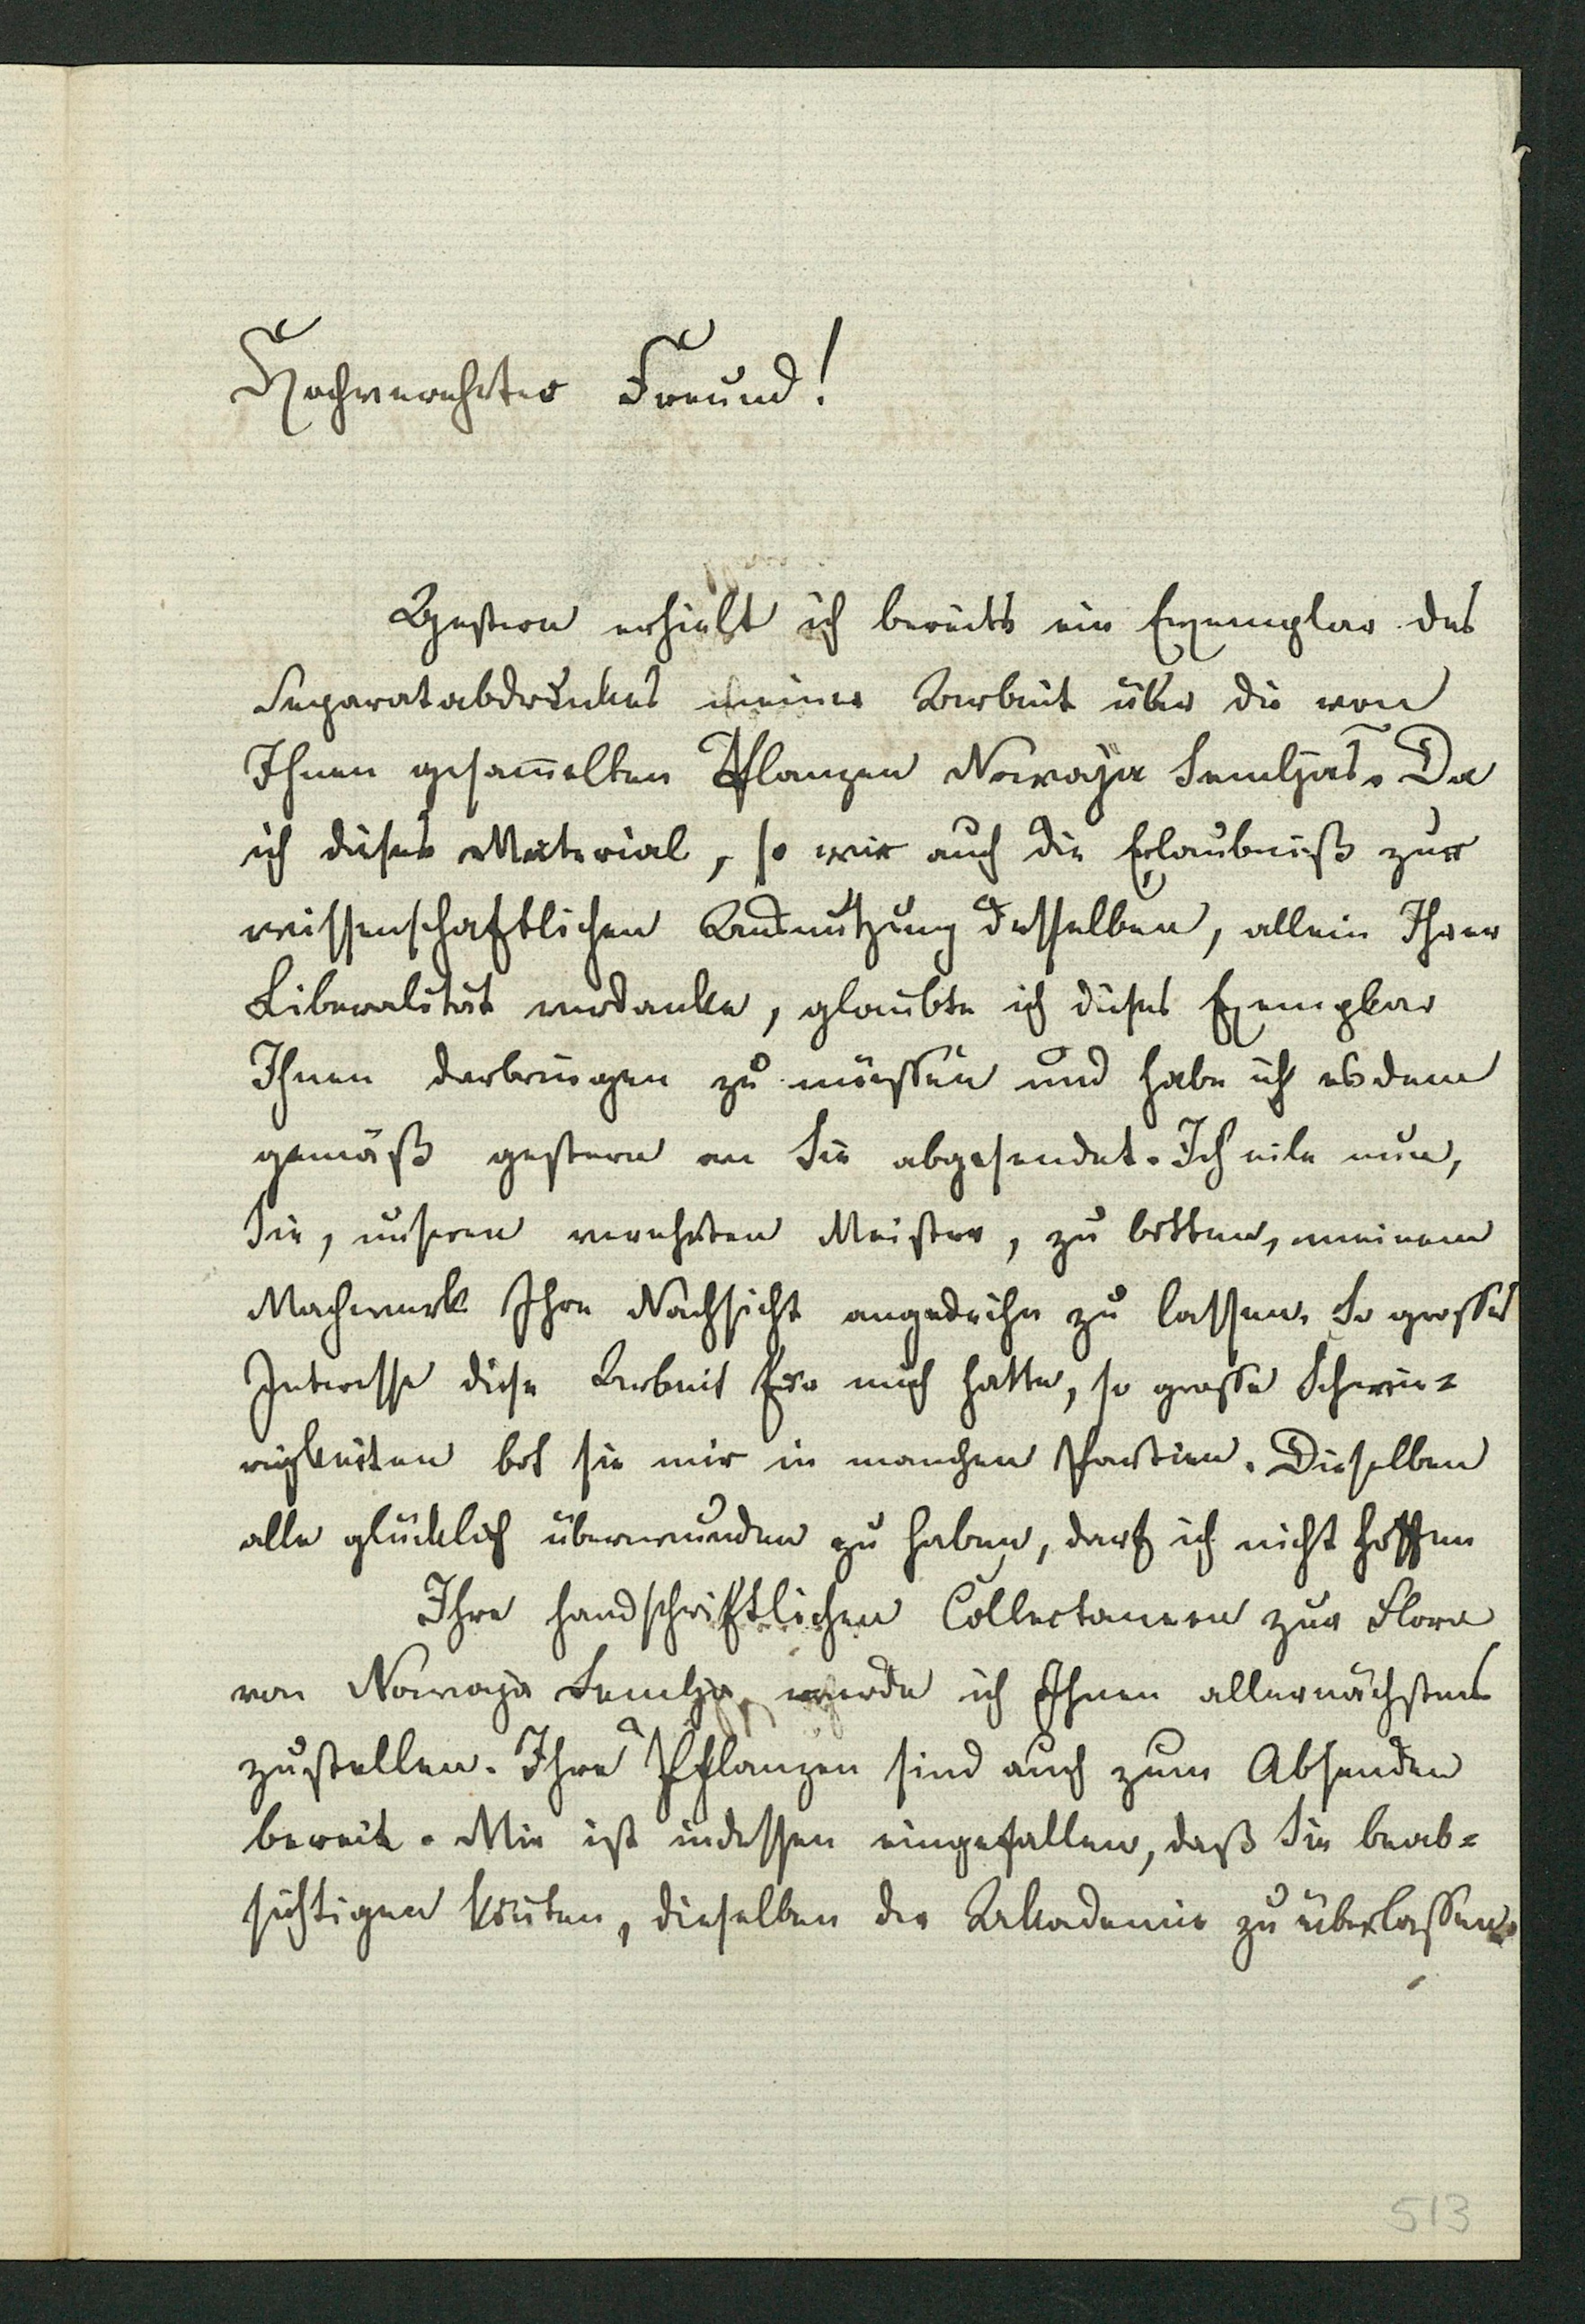 Hochverehrter Freund!
Gestern erhielt ich bereits ein Exemplar des
Separatabdruckes meiner Arbeit über die von
Ihnen gesam̅elten Pflanzen Nowaja Semljas. Da
ich dieses Material, so wie auch die Erlaubniß zur
wissenschaftlichen Ausnutzung desselben, allein Ihrer
Liberalität verdanke, glaubte ich dieses Exemplar
Ihnen darbringen zu müssen und habe ich es dem
gemäß gestern an Sie abgesendet. Ich eile nun,
Sie, unseren verehrten Meister, zu bitten, meinem
Machwerk Ihre Nachsicht angedeihn zu lassen. So grosses
Interesse diese Arbeit für mich hatte, so grosse Schwie=
rigkeiten bot sie mir in manchen Partien. Dieselben
alle glücklich überwunden zu haben, darf ich nicht hoffen
Ihre handschriftlichen Collectaneen zur Flora
von Nowaja Semlja werde ich Ihnen allernächstens
zustellen. Ihre Pflanzen sind auch zum Absenden
bereit. Mir ist indessen eingefallen, daß Sie beab=
sichtigen könten, dieselben der Akademie zu überlassen.
513